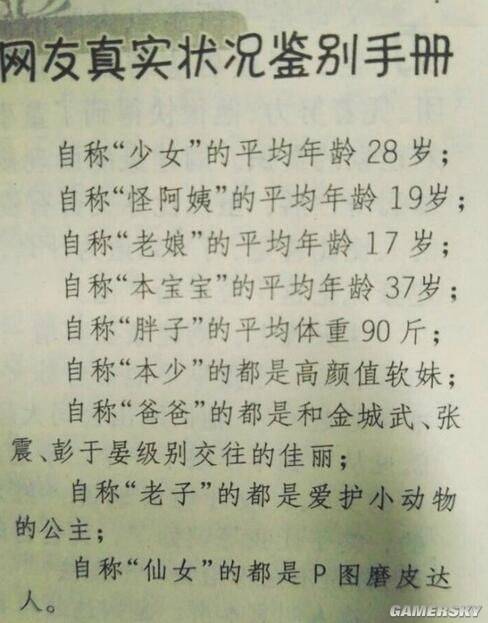 网友真实状况鉴别手册
自称“少女”的平均年龄 28 岁；
自称“怪阿姨”的平均年龄 19岁；
自称“老娘”的平均年龄 17 岁；
自称“本宝宝”的平均年龄 37岁；
自称“胖子”的平均体重 90 斤；
自称“本少”的都是高颜值软妹；
自称“爸爸”的都是和金城武、张
震、彭于晏级别交往的佳丽；
自称“老子”的都是爱护小动物
的公主；
自称“仙女”的都是 P 图磨皮达
人。
GAMERSKY